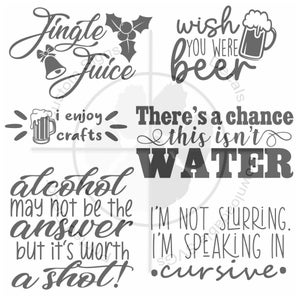 Jingle
Juice
wish
YOU WERE
beer
i enjoy
crafts
There's a chance
this isn't
WATER
alcohol
MAY NOT BE THE
answer
BUT IT'S WORTH
a shot!
I'M NOT SLURRING.
I'M SPEAKING IN
cursive.